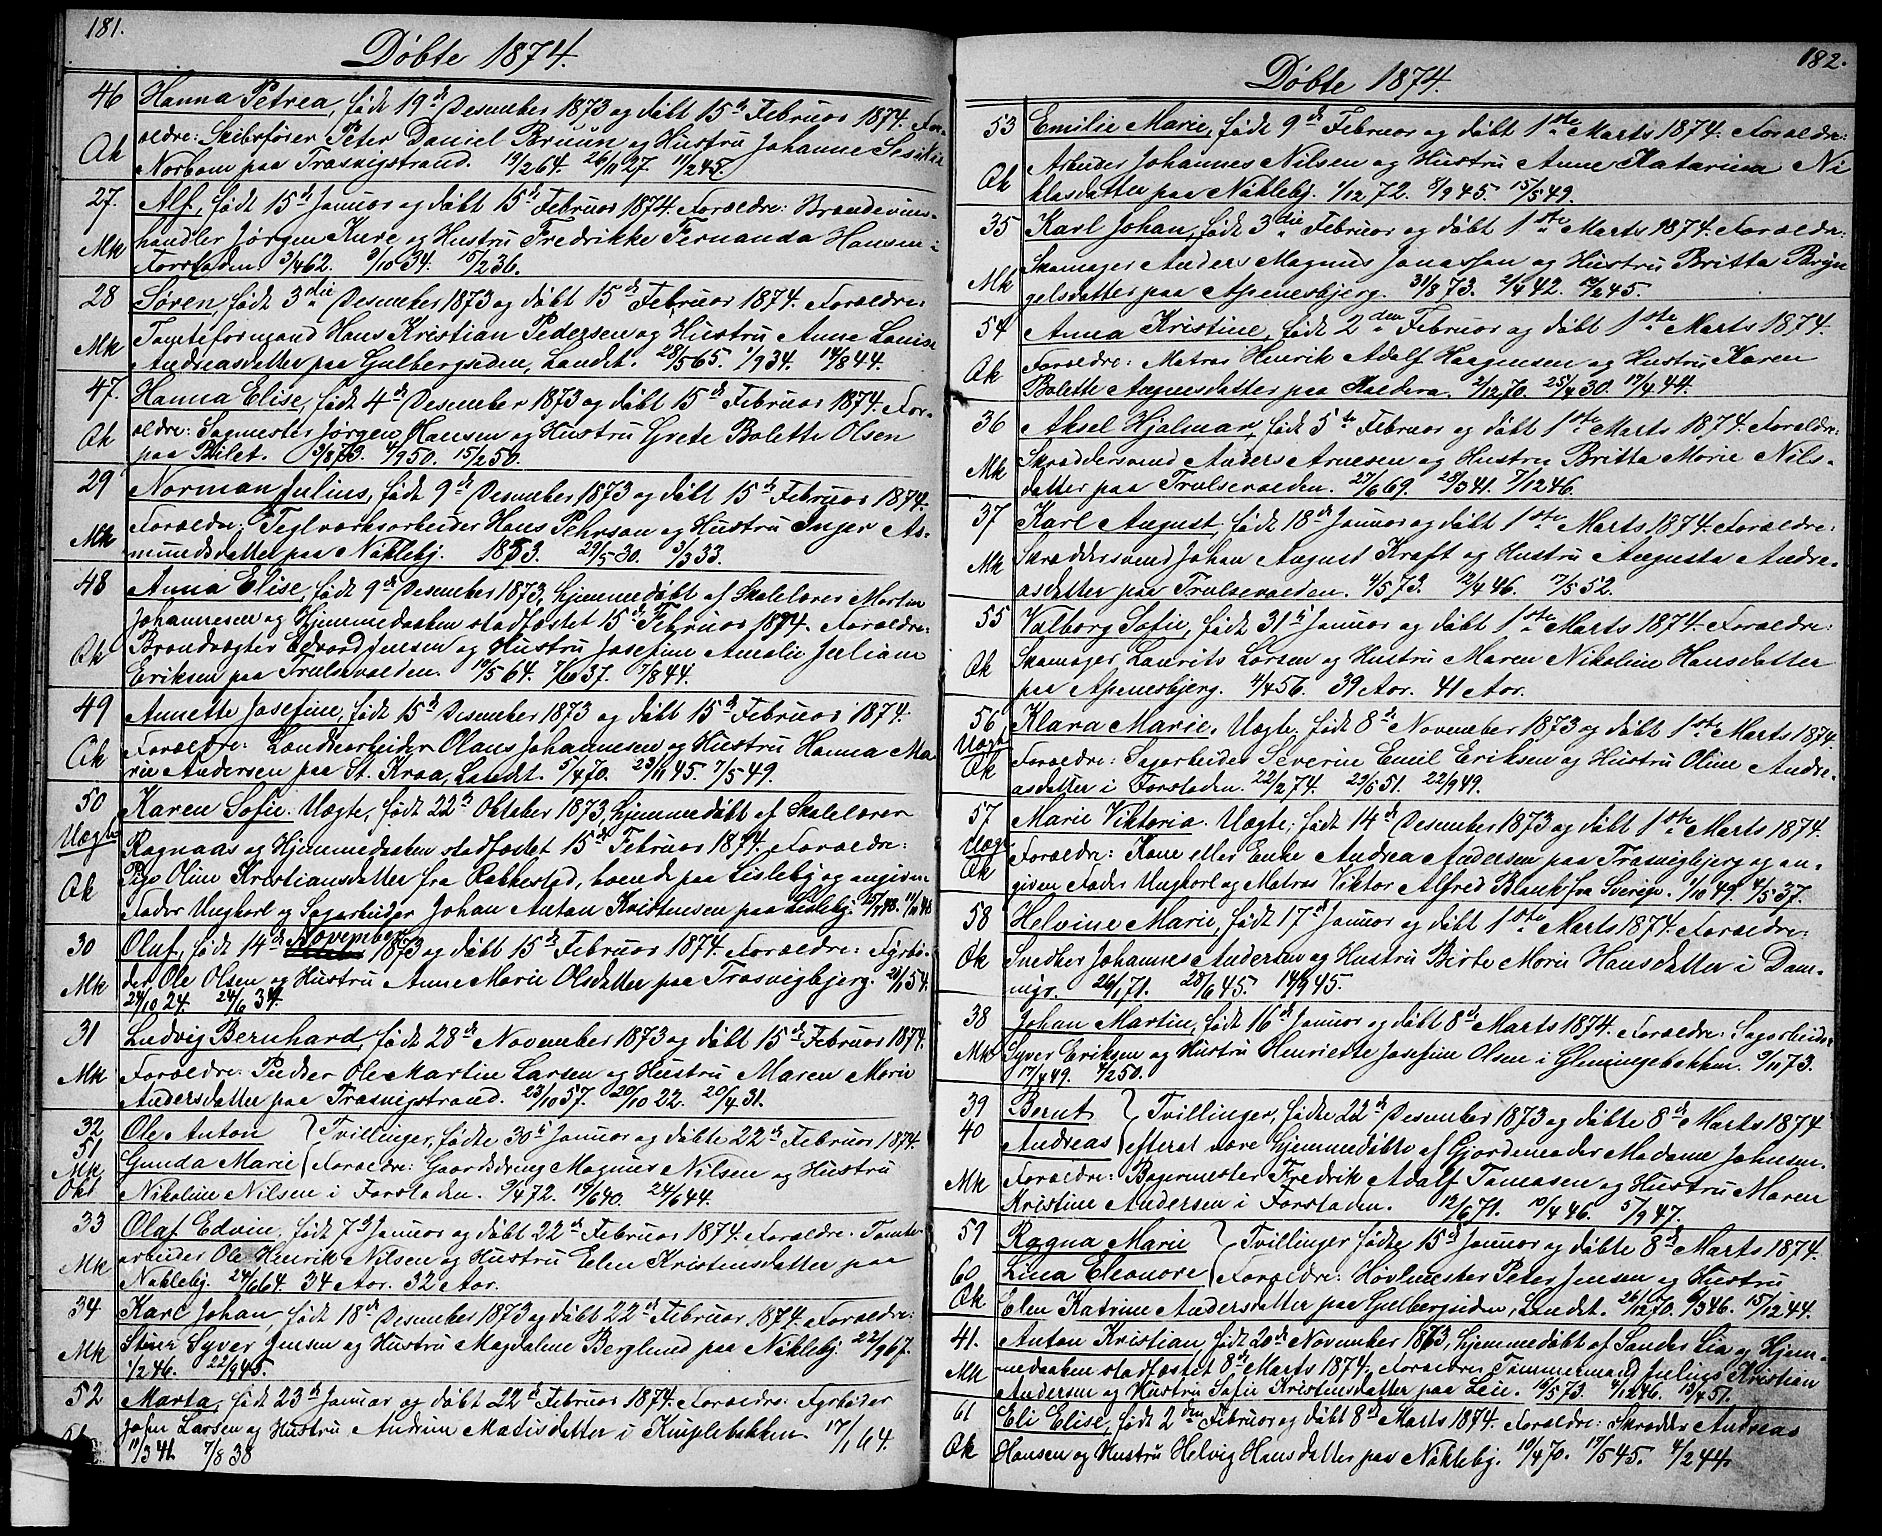 181.
Døbte 1874.
46 Hanna Petrea, født 19de Desember 1873 og døbt 15de Februar 1874. For-
ældre: Skibsfører Peter Daniel Bruun og Hustru Johanne
Qk Norbom paa Trosvigstrand. 19/2 64. 26/11 27. 11/2 45.
27. Alf, født 15de Januar og døbt 15de Februar 1874. Forældre: Brændevins-
Mk handler Jørgen Kure og Hustru Fredrikke Fernanda Hansen i
Forstaden. 3/4 62. 9/10 34. 15/2 36.
28 Søren, født 3die Desember 1873 og døbt 15de Februar 1874. Forældre:
Tomteformand Hans Kristian Pedersen og Hustru Anne Louise
Mk Andreasdatter paa Gulbergsiden, Landet. 28/5 65. 1/9 34. 14/8 44.
47. Hanna Elise, født 4de Desember 1873 og døbt 15de Februar 1874. For-
Qk ældre: Sagmester Jørgen Hansen og Hustru Grete Bolette Olsen
paa Bilet. 3/8 73. 4/9 50. 15/2 50.
29 Norman Julius, født 9de Desember 1873 og døbt 15de Februar 1874.
Forældre: Teglværksarbeider Hans Pehrson og Hustru Inger As-
Mk mundsdatter paa Nøkleby. 1853. 29/5 30. 3/3 33.
48 Anna Elise, født 9de Desember 1873, hjemmedøbt af Skolelærer Martin
Johannesen og Hjemmedaaben stadfæstet 15de Februar 1874. Forældre:
Qk Brandvægter Edvard Jensen og Hustru Josefine Amalie Juliane
Eriksen paa Trulsevolden. 10/5 64. 7/6 37. 7/8 44.
49 Annette Josefine, født 15de Desember 1873 og døbt 15de Februar 1874.
Qk Forældre: Landsarbeider Olaus Johannesen og Hustru Hanna Ma-
rie Andersen paa St. Kraa, Landet. 5/4 70. 23/11 45. 7/5 49.
50 Karen Sofie. Uægte, født 22de Oktober 1873, hjemmedøbt af Skolelærer
Uægte Ragnaas og Hjemmedaaben stadfæstet 15de Februar 1874. Forældre:
Qk Pige Oline Kristiansdatter fra Rakkestad, boende paa Lisleby og angiven
Fader Ungkarl og Sagarbeider Johan Anton Kristensen paa Lisleby.
30 Oluf, født 14de November 1873 og døbt 15de Februar 1874. Forældre: Fyrbø-
Mk der Ole Olsen og Hustru Anne Marie Olsdatter paa Trosvigbjerg. 21/1 54.
24/10 24. 24/6 34.
31 Ludvig Bernhard, født 28de November 1873 og døbt 15de Februar 1874.
Mk Forældre: Pudser Ole Martin Larsen og Hustru Maren Marie
Andersdatter paa Trosvigstrand. 23/10 57. 20/10 22. 20/4 31.
32 Ole Anton } Tvillinger, fødte 30te Januar og døbte 22de Februar 1874.
51 Gunda Marie } Forældre: Gaardsdreng Magnus Nilsen og Hustru
Mk Qk Nikoline Nilsen i Forstaden. 9/4 72. 19/6 40. 24/6 44.
33 Olaf Edvin, født 7de Januar og døbt 22de Februar 1874. Forældre: Tomte-
Mk arbeider Ole Henrik Nilsen og Hustru Elen Kristensdatter paa
Nøkleby. 24/6 64. 34 Aar. 32 Aar.
34 Karl Johan, født 18de Desember 1873 og døbt 22de Februar 1874. Forældre:
Mk Stuer Syver Jensen og Hustru Magdalene Berglund paa Nøkleby. 22/9 67.
1/2 46. 22/9 45.
52 Marta, født 23de Januar og døbt 22de Februar 1874. Forældre: Fyrbøder
Qk Larsen og Hustru Andrine Matisdatter i Kniplebakken. 17/1 64.
11/3 41. 7/8 38
182.
Døbte 1874.
53 Emilie Marie, født 9de Februar og døbt 1ste Marts 1874. Forældre:
Qk Arbeider Johannes Nilsen og Hustru Anne Katarina Ni
klasdatter paa Nøkleby. 1/12 72. 8/9 45. 15/5 49.
35 Karl Johan, født 3die Februar og døbt 1ste Marts 1874. Forældre:
Mk Skomager Anders Magnus Jonassen og Hustru Britta Bryn
gelsdatter paa Apenesbjerg. 31/8 73. 2/4 42. 12/2 45.
54 Anna Kristine, født 2den Februar og døbt 1ste Marts 1874.
Qk Forældre: Matros Henrik Adolf Haagensen og Hustru Karen
Bolette Aagesdatter paa Holdera. 2/12 70. 25/4 30. 17/4 44.
36 Aksel Hjalmar, født 5te Februar og døbt 1ste Marts 1874. Forældre:
Mk Skræddersvend Anders Arnesen og Hustru Britta Marie Nils-
datter paa Trulsevolden. 27/6 69. 28/3 41. 7/12 46.
37 Karl August, født 18de Januar og døbt 1ste Marts 1874. Forældre:
Mk Skræddersvend Johan August Kraft og Hustru Augusta Andre-
asdatter paa Trulsevolden. 4/5 73. 12/4 46. 17/5 52.
55 Valborg Sofie, født 31te Januar og døbt 1ste Marts 1874. Forældre:
Qk Skomager Laurits Larsen og Hustru Maren Nikoline Hansdatter
paa Apenesbjerg. 4/4 56. 39 Aar. 41 Aar.
56 Klara Marie. Uægte, født 8de November 1873 og døbt 1ste Marts 1874.
Uægte Qk Forældre: Sagarbeider Severin Emil Eriksen og Hustru Oline Andre-
asdatter i Forstaden. 22/2 74. 29/5 51. 22/9 49.
57 Marie Viktoria. Uægte, født 14de Desember 1873 og døbt 1ste Marts 1874.
Uægte Forældre: Kone eller Enke Andrea Andersen paa Trosvigbjerg og an-
Qk given Fader Ungkarl og Matros Viktor Alfred Blank fra Sverige. 1/10 49. 4/5 37.
58 Helvine Marie, født 17de Januar og døbt 1ste Marts 1874. Forældre:
Qk Snedker Johannes Andersen og Hustru Birte Marie Hansdatter i Dam-
myr. 26/1 71. 28/6 45. 14/9 45.
38 Johan Martin, født 16de Januar og døbt 8de Marts 1874. Forældre: Sagarbeider
Mk Syver Eriksen og Hustru Henriette Josefine Olsen i Glemmingebakken. 9/11 73.
17/4 49. 4/2 50.
39 Bernt } Tvillinger, fødte 22de Desember 1873 og døbte 8de Marts 1874
40 Andreas } efterat være hjemmedøbte af Gjordemoder Madame Johnsen.
Mk Forældre: Bagermester Fredrik Adolf Tomasen og Hustru Maren
Kristine Andersen i Forstaden. 12/6 71. 10/4 46. 5/9 47.
59 Ragna Marie } Tvillinger fødte 15de Januar og døbte 8de Marts 1874.
60 Lina Eleonore } Forældre: Høvlmester Peter Jensen og Hustru
Qk Elen Katrine Andersdatter paa Gulbergsiden, Landet. 26/12 70. 6/3 46. 15/12 44.
41. Anton Kristian, født 20de November 1873, hjemmedøbt af Sander Lia og Hjem-
Mk medaaben stadfæstet 8de Marts 1874. Forældre: Tømmermand Julius Kristian
Andersen og Hustru Sofie Kristensdatter paa Leie. 16/5 73. 4/12 46. 13/4 51.
61 Eli Elise, født 2den Februar og døbt 8de Marts 1874. Forældre: Skrædder Andreas
Qk Hansen og Hustru Helvig Hansdatter paa Nøkleby. 10/4 70. 17/5 45. 4/2 44.